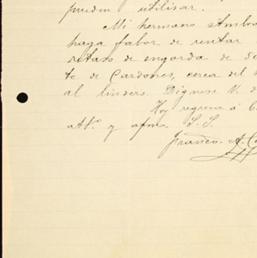 pueden utilisar.
Mi hermano Ambro
haga fabor de rentar
retaso de engorda de
te de Cardones, cerca del
al lindero. Dignese V. d
Hoy regreso á C
att° y afmo S. S.
Franco. A. Co